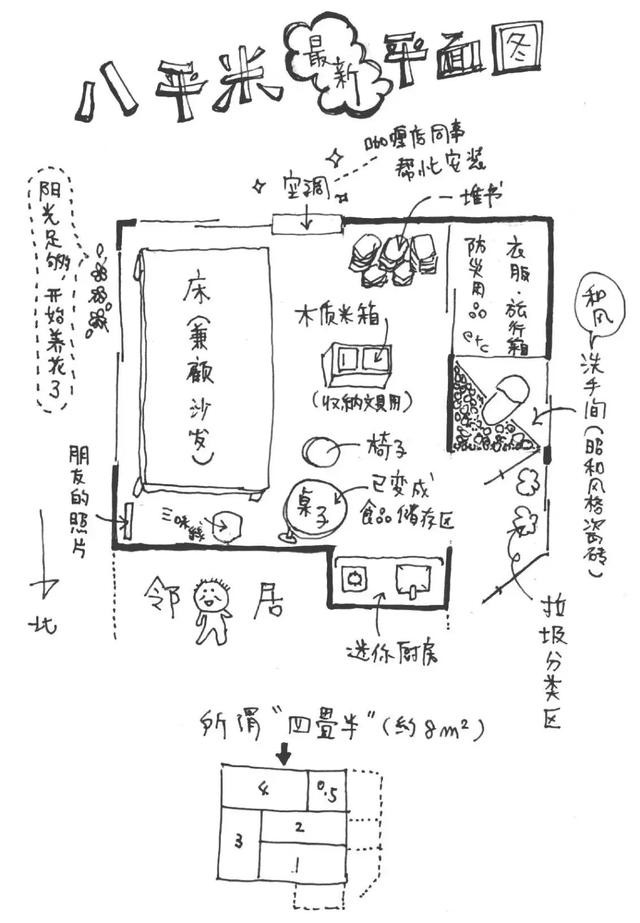 八平米最新平面图
咖喱店同事
帮忙安装
空调
一堆书
阳光足够，开始养花了
床（兼顾沙发）
木质米箱
（收纳文具用）
衣服·旅行箱
防災用品
etc
和风
洗手间（昭和风格瓷砖）
椅子
桌子
已变成
食品储存区
朋友的照片
三味線
北
邻居
迷你厨房
垃圾分类区
所谓"四畳半"(约8m²)
4
0.5
3
2
1